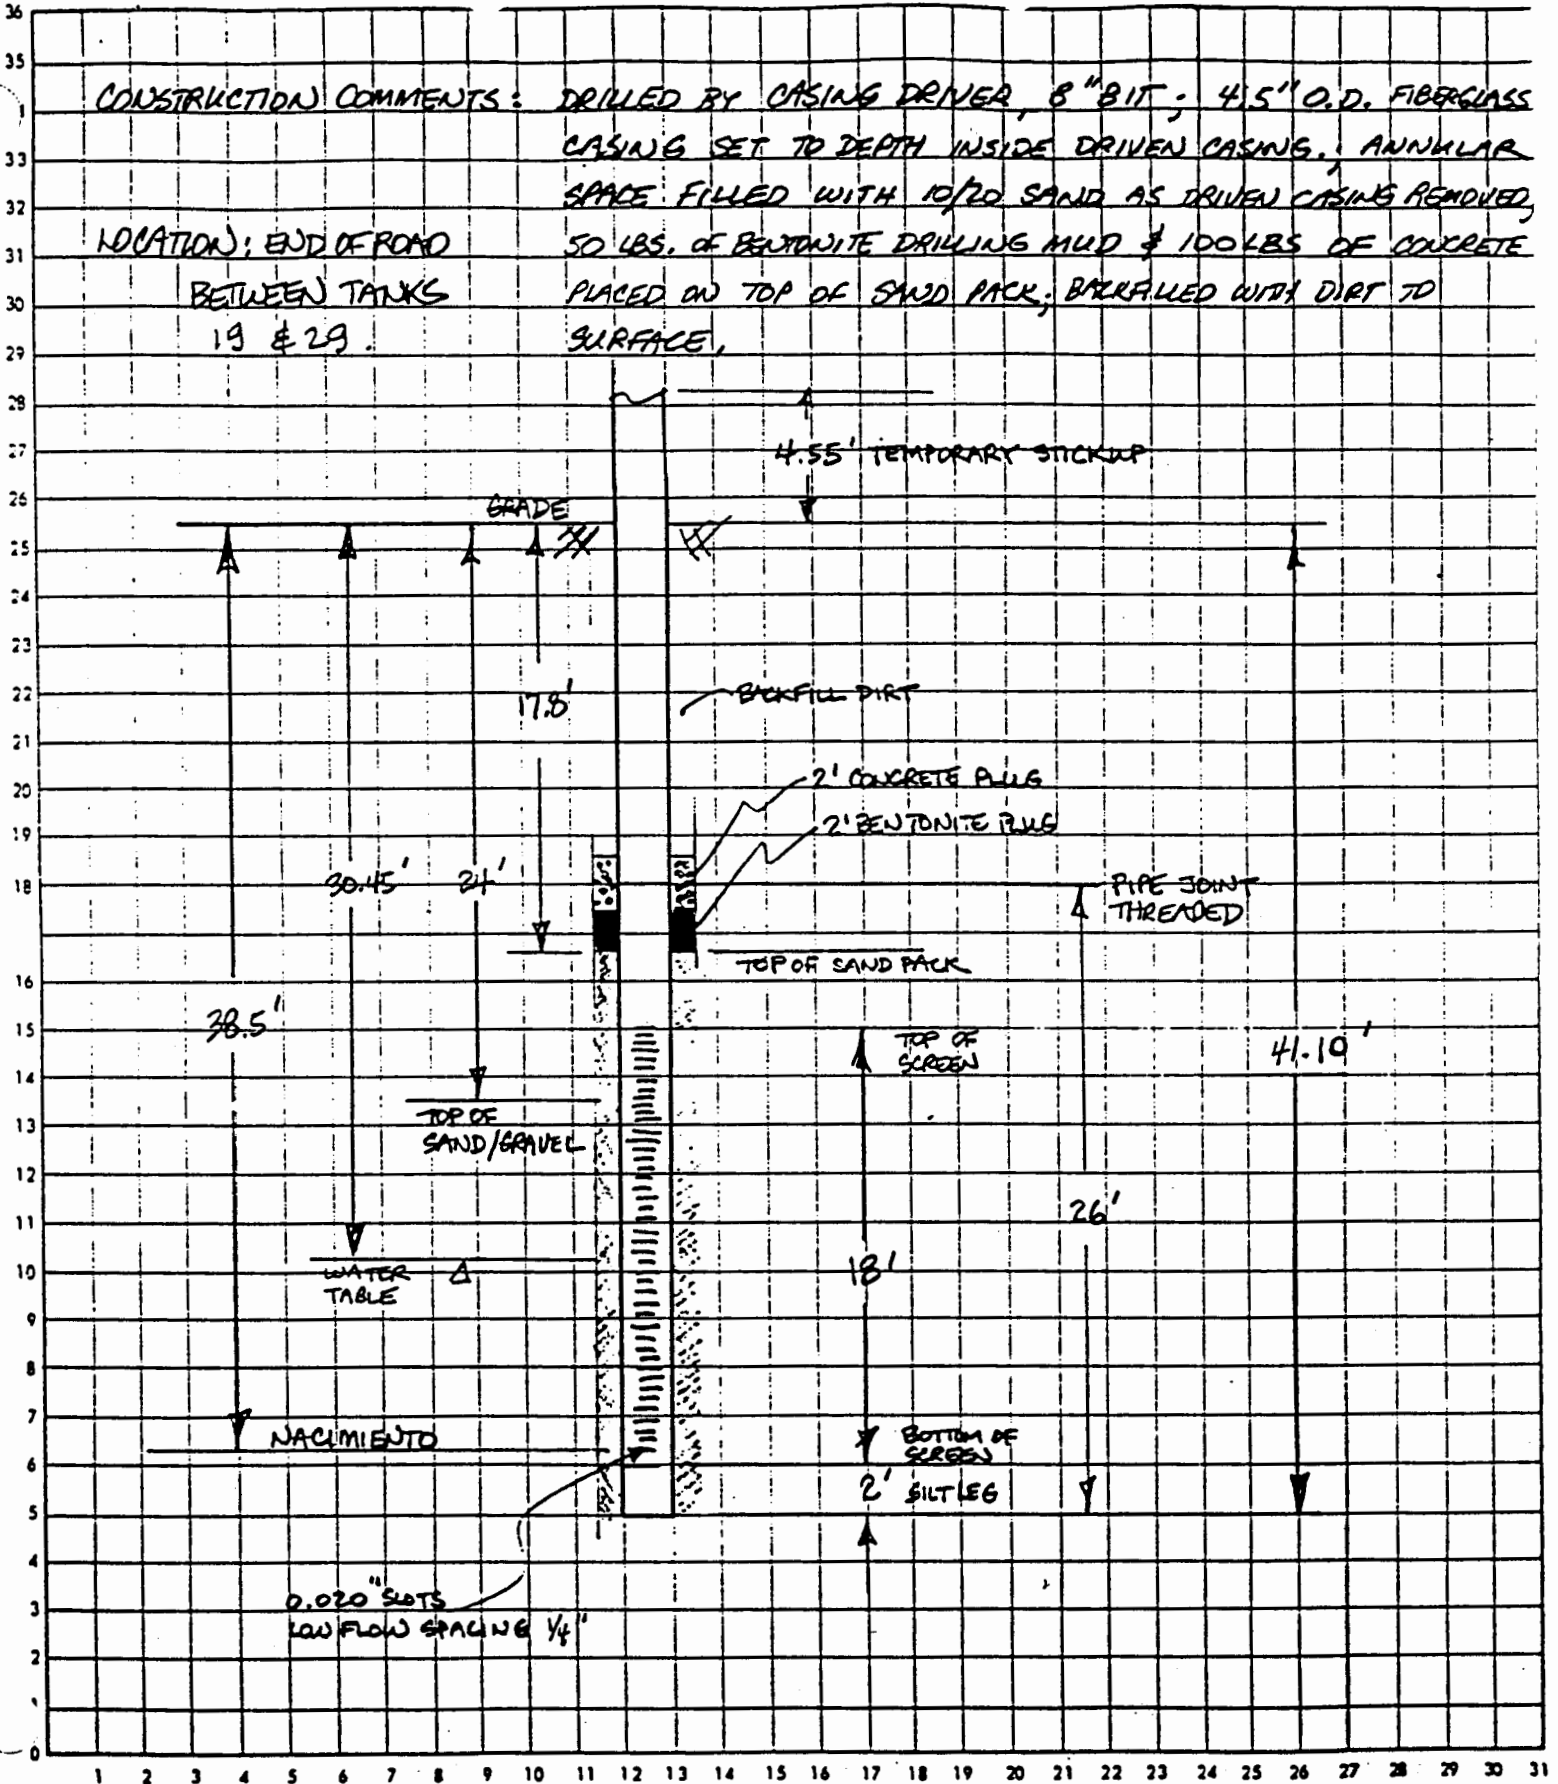 CONSTRUCTION COMMENTS: DRILLED BY CASING DRIVER, 8" BIT; 4.5" O.D. FIBERGLASS
CASING SET TO DEPTH INSIDE DRIVEN CASING.; ANNULAR
SPACE FILLED WITH 10/20 SAND AS DRIVEN CASING REMOVED,
50 LBS. OF BENTONITE DRILLING MUD & 100 LBS OF CONCRETE
PLACED ON TOP OF SAND PACK; BACKFILLED WITH DIRT TO
SURFACE.
LOCATION: END OF ROAD
BETWEEN TANKS
19 & 29.
4.55' TEMPORARY STICKUP
GRADE
17.8'
BACKFILL DIRT
2' CONCRETE PLUG
2' BENTONITE PLUG
30.45'
24'
PIPE JOINT
THREADED
TOP OF SAND PACK
38.5'
TOP OF
SCREEN
41.10'
TOP OF
SAND/GRAVEL
26'
18'
WATER
TABLE
NACIMIENTO
BOTTOM OF
SCREEN
2' SILT LEG
0.020" SLOTS
LOW FLOW SPACING 1/4"
36
35
33
32
31
30
29
28
27
26
25
24
23
22
21
20
19
18
16
15
14
13
12
11
10
9
8
7
6
5
4
3
2
0
1 2 3 4 5 6 7 8 9 10 11 12 13 14 15 16 17 18 19 20 21 22 23 24 25 26 27 28 29 30 31